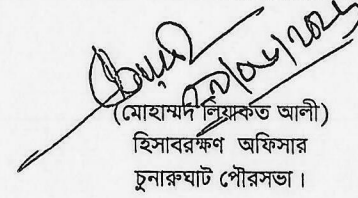 (মোহাম্মদ লিয়াকত আলী)
হিসাবরক্ষণ অফিসার
চুনারুঘাট পৌরসভা।